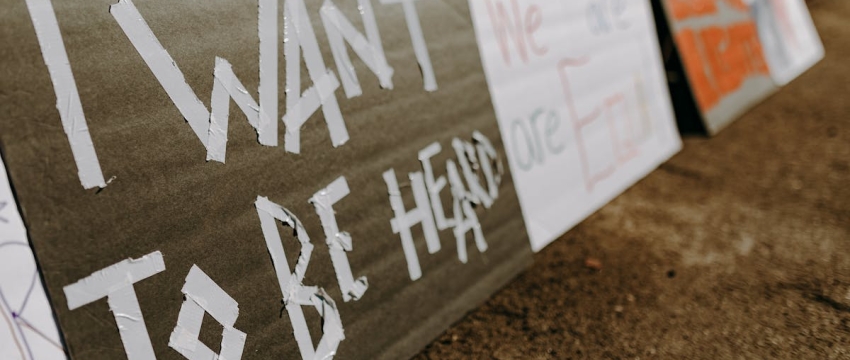 I WANT
TO BE HEARD
We are
are Equ